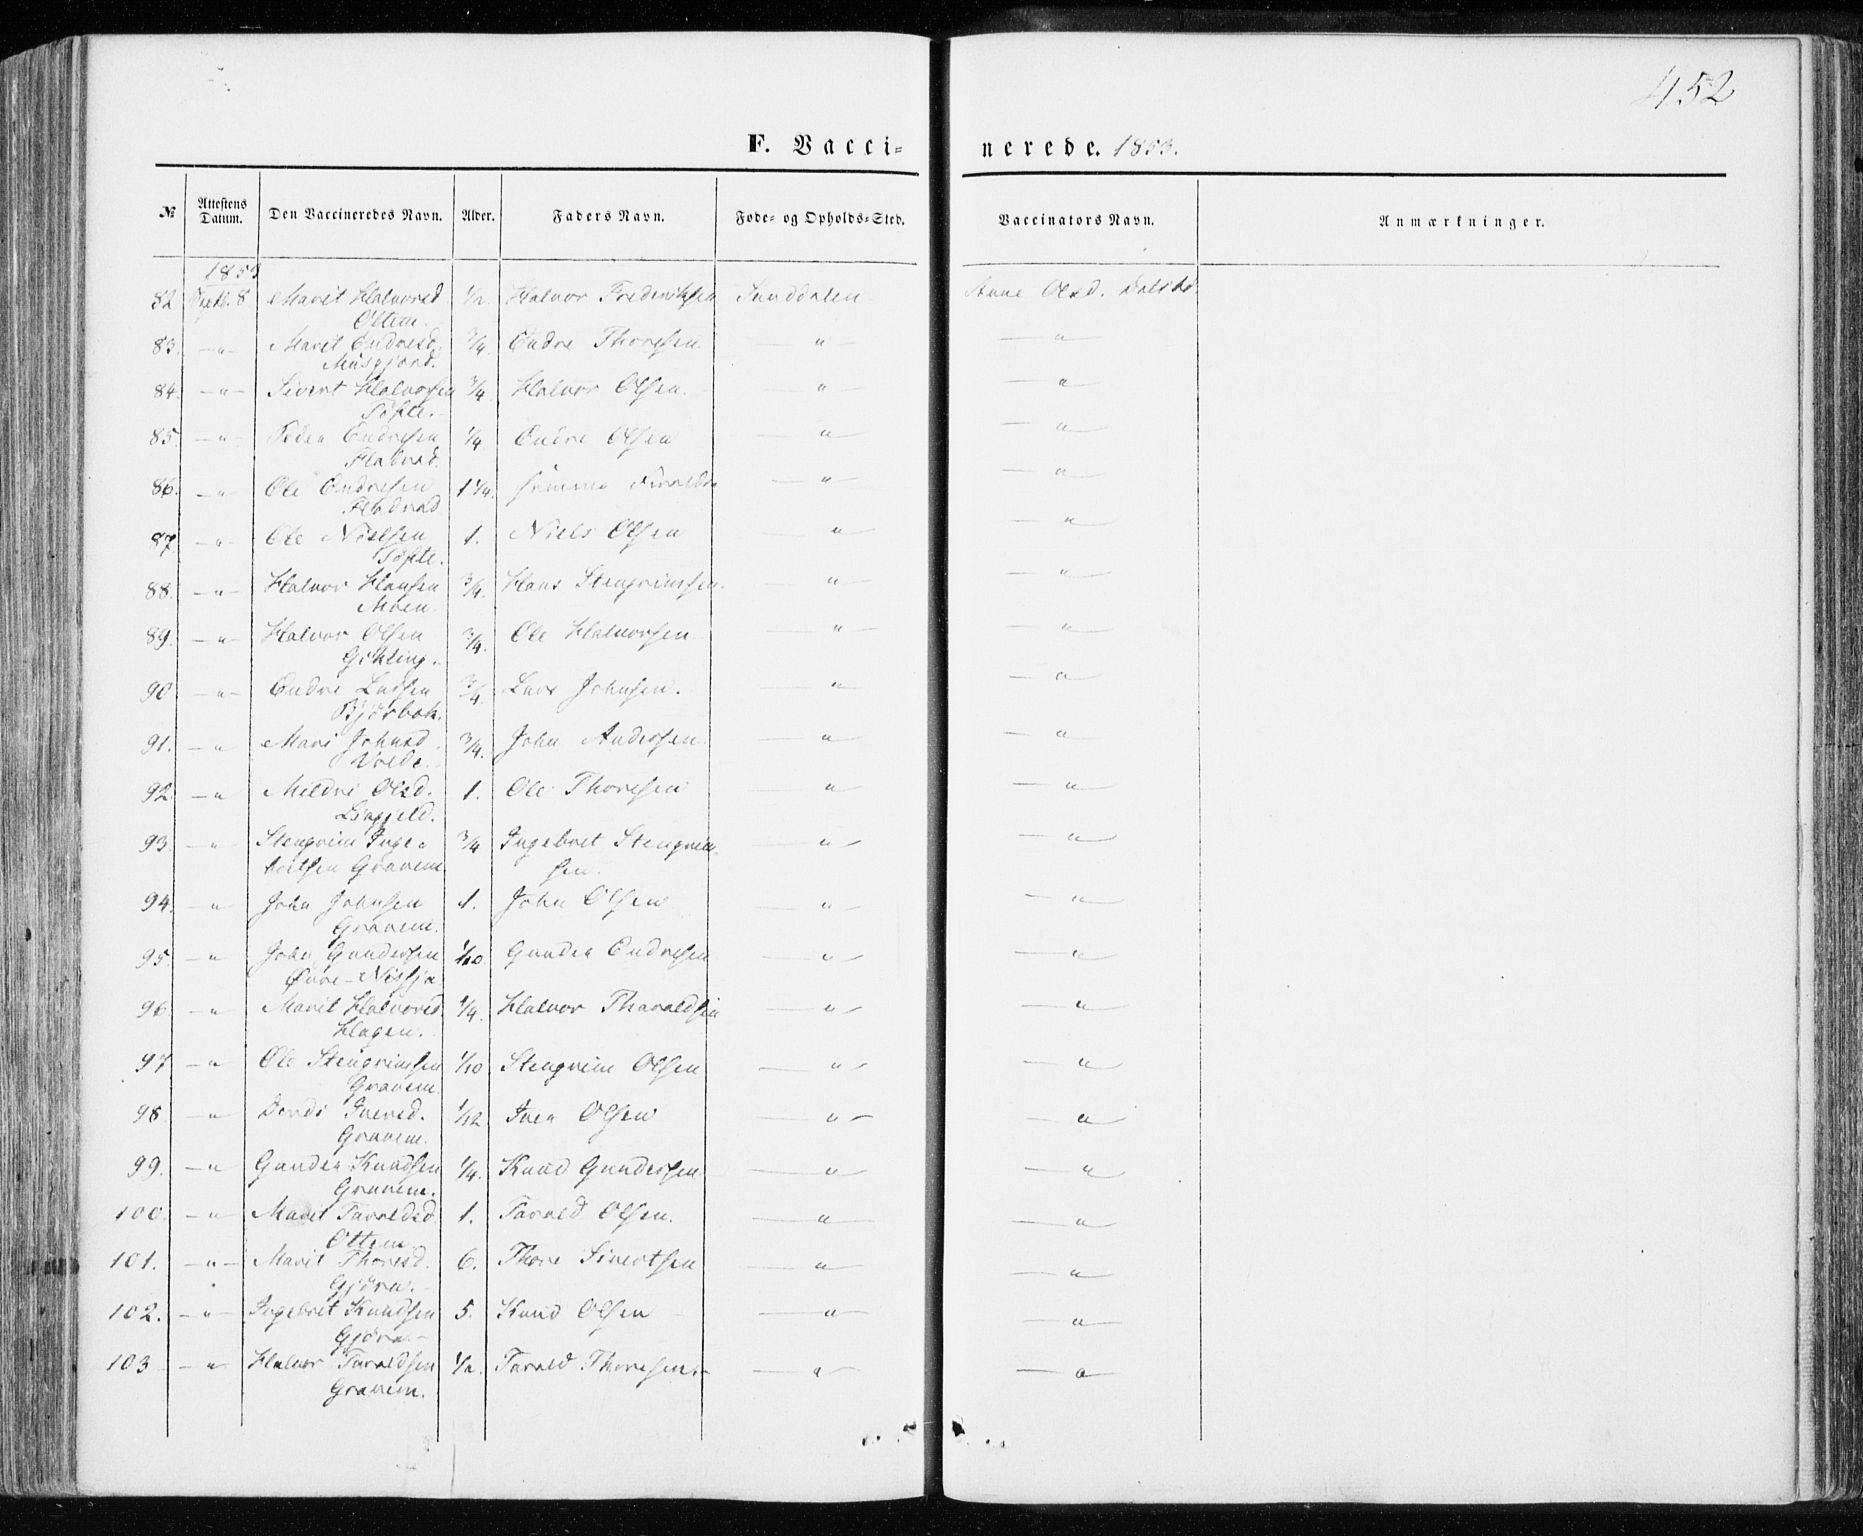 452
F. Vacci- nerede. 1853.
№ Attestens Datum. Den Vaccineredes Navn. Alder. Faders Navn. Føde- og Opholds-Sted. Vaccinators Navn. Anmærkninger.
1853
82 Septb. 8 Marit Halvorsd 1/2 Halvor Frederiksen Sunddalen Anne Olsd.
Ottem.
83. —"— Marit Endresd. 3/4 Endre Thoresen —"— —"—
Musgjerd.
84. —"— Sivert Halvorsen 3/4 Halvor Olsen. —"— —"—
Tofte.
85 —"— Peder Endresen 1/4 Endre Olsen —"— —"—
Flatvad.
86. —"— Ole Endresen 1 1/4. —"— —"—
Fladvad
87 —"— Ole Nielsen 1. Niels Olsen —"— —"—
Tofte.
88. —"— Halvor Hansen 3/4. Hans Stengrimsen. —"— —"—
Moen.
89. —"— Halvor Olsen 3/4. Ole Halvorsen —"— —"—
Gikling.
90 —"— Endre Larsen 3/4 Lars Johnsen. —"— —"—
Bjørbak.
91. —" Mari Johnsd. 3/4. John Andersen. —"— —"—
Volde.
92. —" Mildri Olsd. 1. Ole Thoresen —"— —"—
93. —" Stengrim Inge- 3/4 Ingebret Stengrim- —"— —"—
bretsen Gravem sen.
94. —" John Johnsen 1. John Olsen —"— —"—
Gravem.
95. —" John Gundersen 1/10. Gunder Endresen —"— —"—
Øvre-Nisja
96. —" Marit Halvorsd 1/4. Halvor Tharaldsen —"— —"—
Hagen.
97 —" Ole Stengrimsen 1/10 Stengrim Olsen —"— —"—
Gravem.
98. —" Dordi Iversd. 1/12 Iver Olsen —"— —"—
Gravem.
99. —" Gunder Knudsen 1/4. Knud Gundersen —"— —"—
Gravem.
100. —"— Marit Taraldsd 1. Tarald Olsen. —"— —"—
Ottem
101. —"— Marit Thoresd. 6. Thore Sivertsen —"— —"—
Gjøra.
102. —"— Ingebret Knudsen 5. Knud Olsen —"— —"—
Gjøra.
103 —"— Halvor Taraldsen 1/2. Tarald Thoresen. —"— —"—
Gravem.